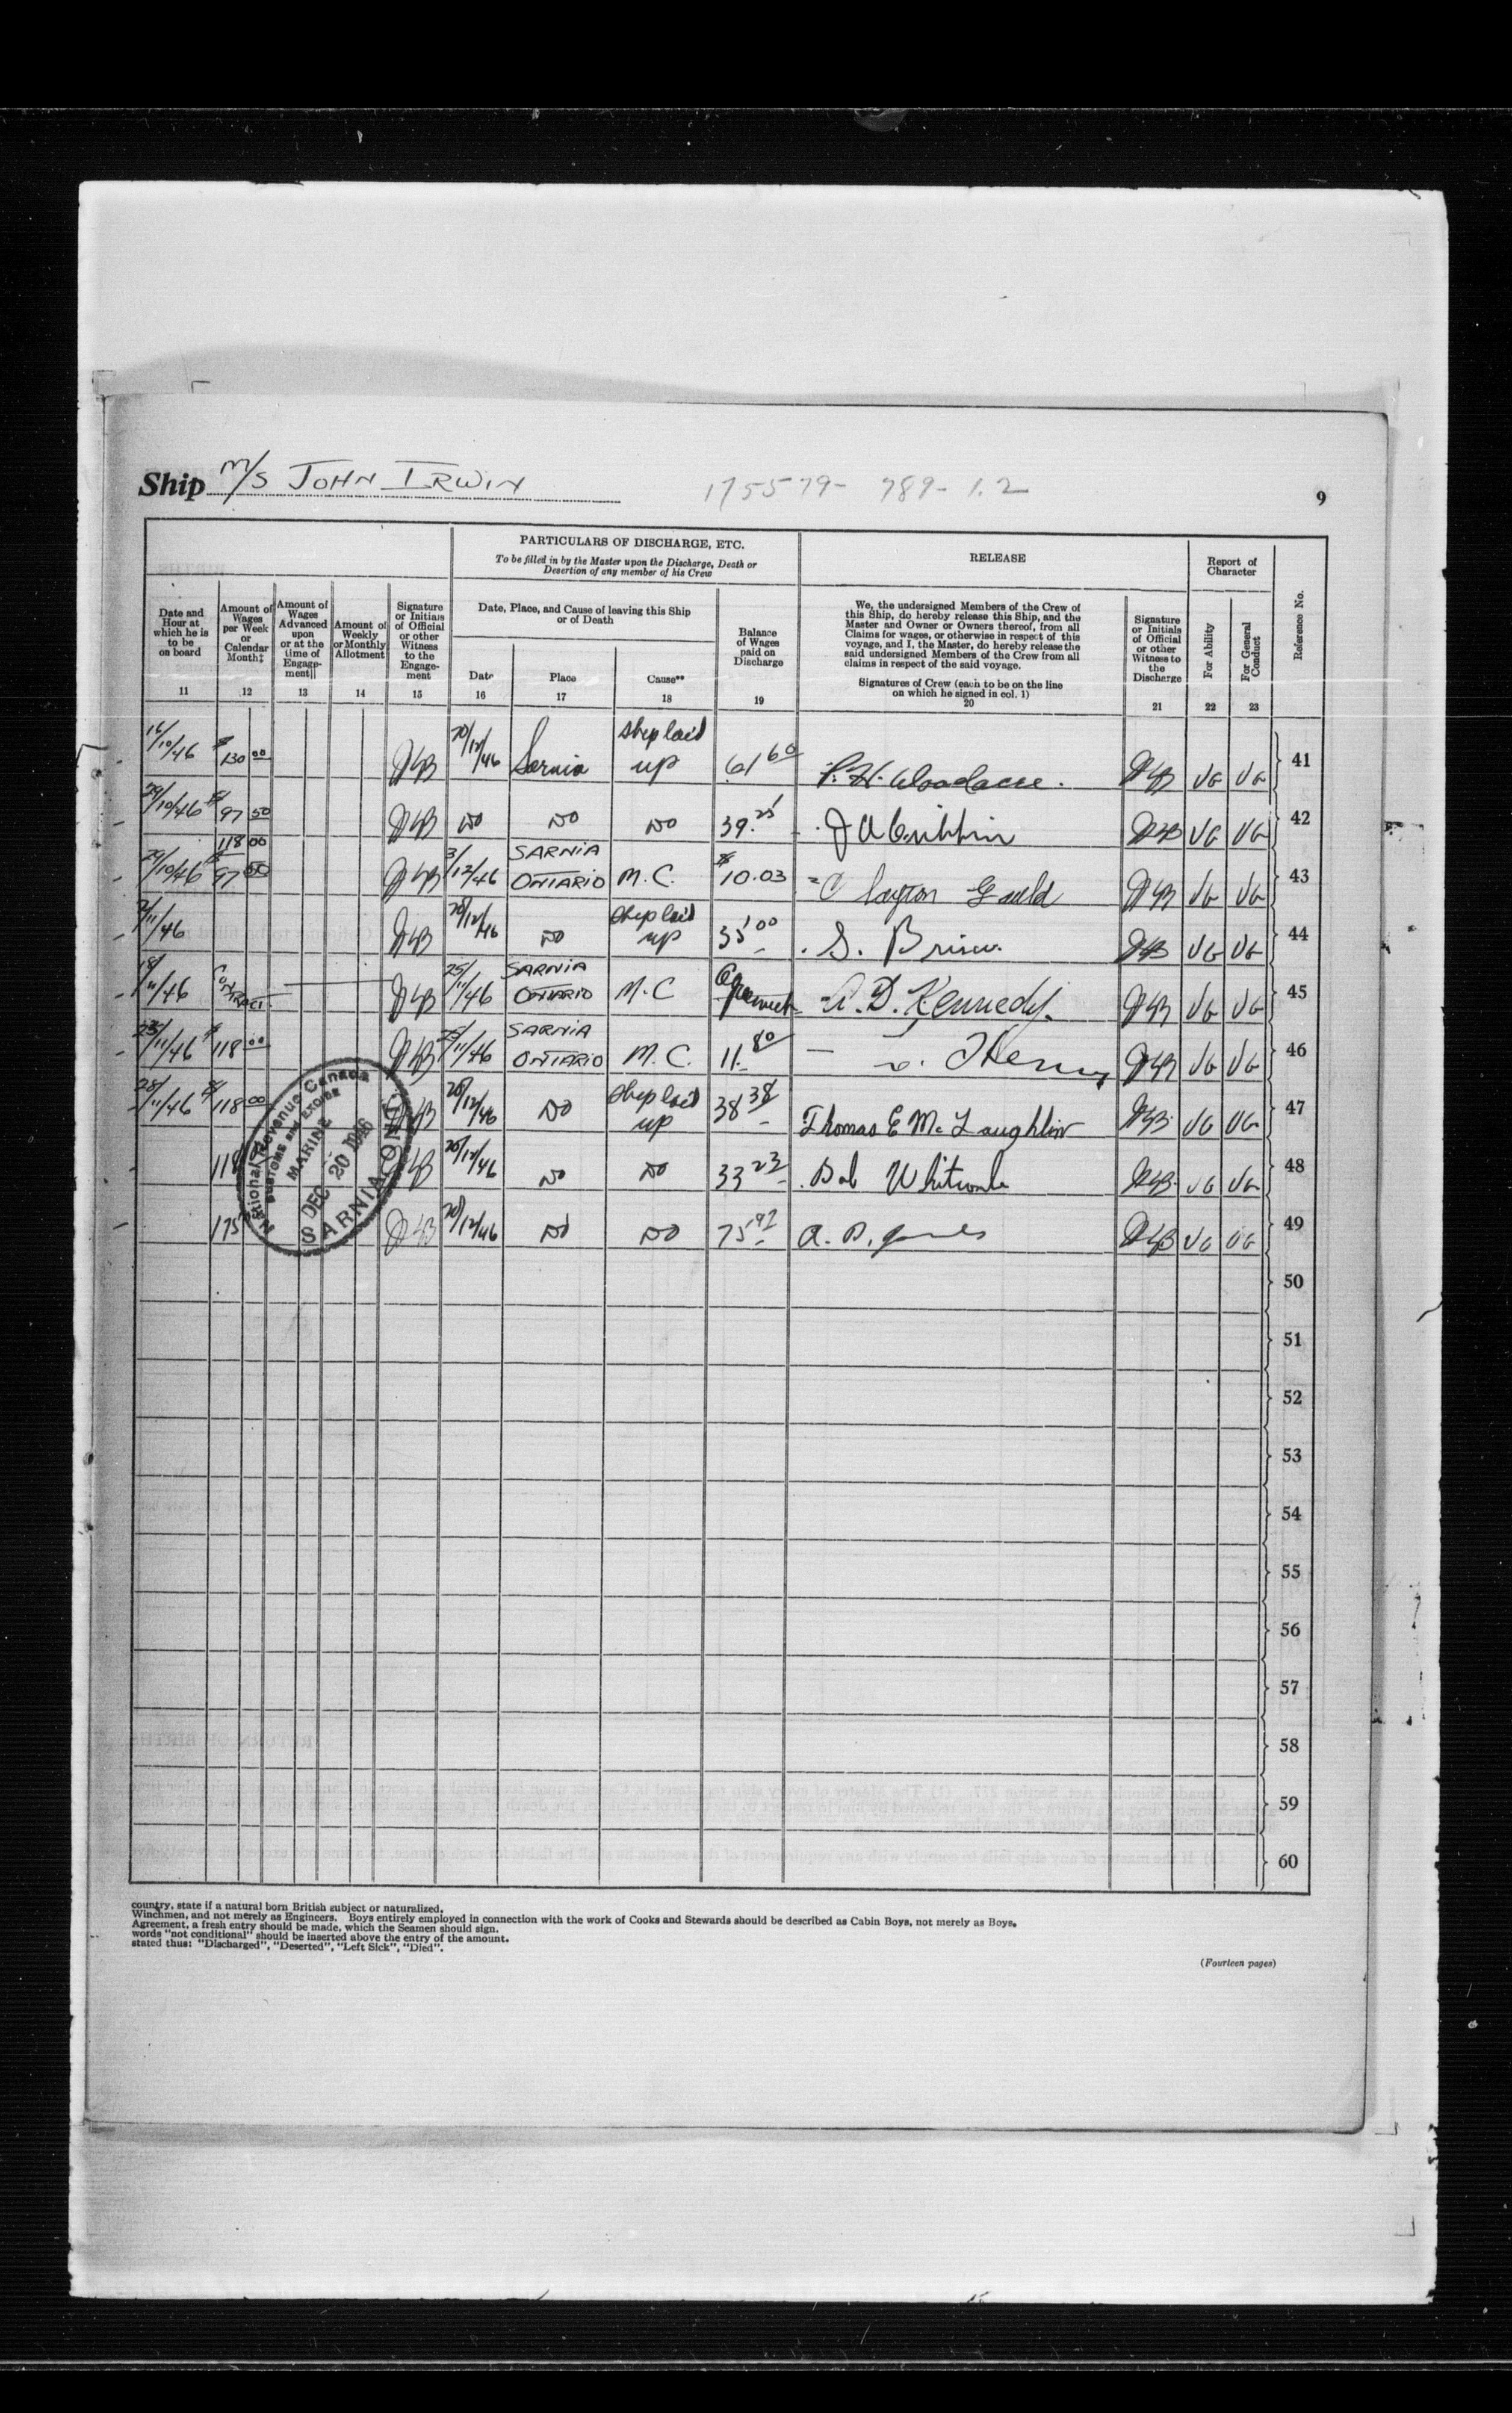 Ship M/S JOHN IRWIN
175579- 789- 1.2
9
PARTICULARS OF DISCHARGE, ETC.
To be filled in by the Master upon the Discharge, Death or
Desertion of any member of his Crew
RELEASE
Report of
Character
Reference No.
Date and
Hour at
which he is
to be
on board
11
Amount of
Wages
per Week
or
Calendar
Month‡
12
Amount of
Wages
Advanced
upon
or at the
time of
Engage-
ment||
13
Amount of
Weekly
or Monthly
Allotment
14
Signature
or Initials
of Official
or other
Witness
to the
Engage-
ment
15
Date, Place, and Cause of leaving this Ship
or of Death
Date
16
Place
17
Cause**
18
Balance
of Wages
paid on
Discharge
19
We, the undersigned Members of the Crew of
this Ship, do hereby release this Ship, and the
Master and Owner or Owners thereof, from all
Claims for wages, or otherwise in respect of this
voyage, and I, the Master, do hereby release the
said undersigned Members of the Crew from all
claims in respect of the said voyage.
Signatures of Crew (each to be on the line
on which he signed in col. 1)
20
Signature
or Initials
of Official
or other
Witness to
the
Discharge
21
For Ability
22
For General
Conduct
23
16/10/46 $130 00 20/12/46 Sarnia Ship laid up 61 60 P. H. Woodacre. VG VG 41
29/10/46 $97 50 DO DO DO 39.25 VG VG 42
118 00
29/10/46 $97 50 3/12/46 SARNIA ONTARIO M.C. $10.03 Clayton Gauld VG VG 43
2/11/46 20/12/46 DO Ship laid up 35 00 S. VG VG 44
18/11/46 CONTRACT 25/11/46 SARNIA ONTARIO M.C A. D. Kennedy. VG VG 45
23/11/46 $118 00 25/11/46 SARNIA ONTARIO M.C. 11.80 VG VG 46
28/11/46 $118 00 20/12/46 DO Ship laid up 38 38 Thomas E McLaughlin VG VG 47
118 20/12/46 DO DO 33 23 Bob Whitcombe VG VG 48
175 20/12/46 DO DO 75.97 A. D. Jones VG VG 49
National Revenue Canada
CUSTOMS and EXCISE
MARINE
DEC 20 1946
SARNIA, ONT.
50
51
52
53
54
55
56
57
58
59
60
country, state if a natural born British subject or naturalized.
Winchmen, and not merely as Engineers. Boys entirely employed in connection with the work of Cooks and Stewards should be described as Cabin Boys, not merely as Boys.
Agreement, a fresh entry should be made, which the Seamen should sign.
words "not conditional" should be inserted above the entry of the amount.
stated thus: "Discharged", "Deserted", "Left Sick", "Died".
(Fourteen pages)